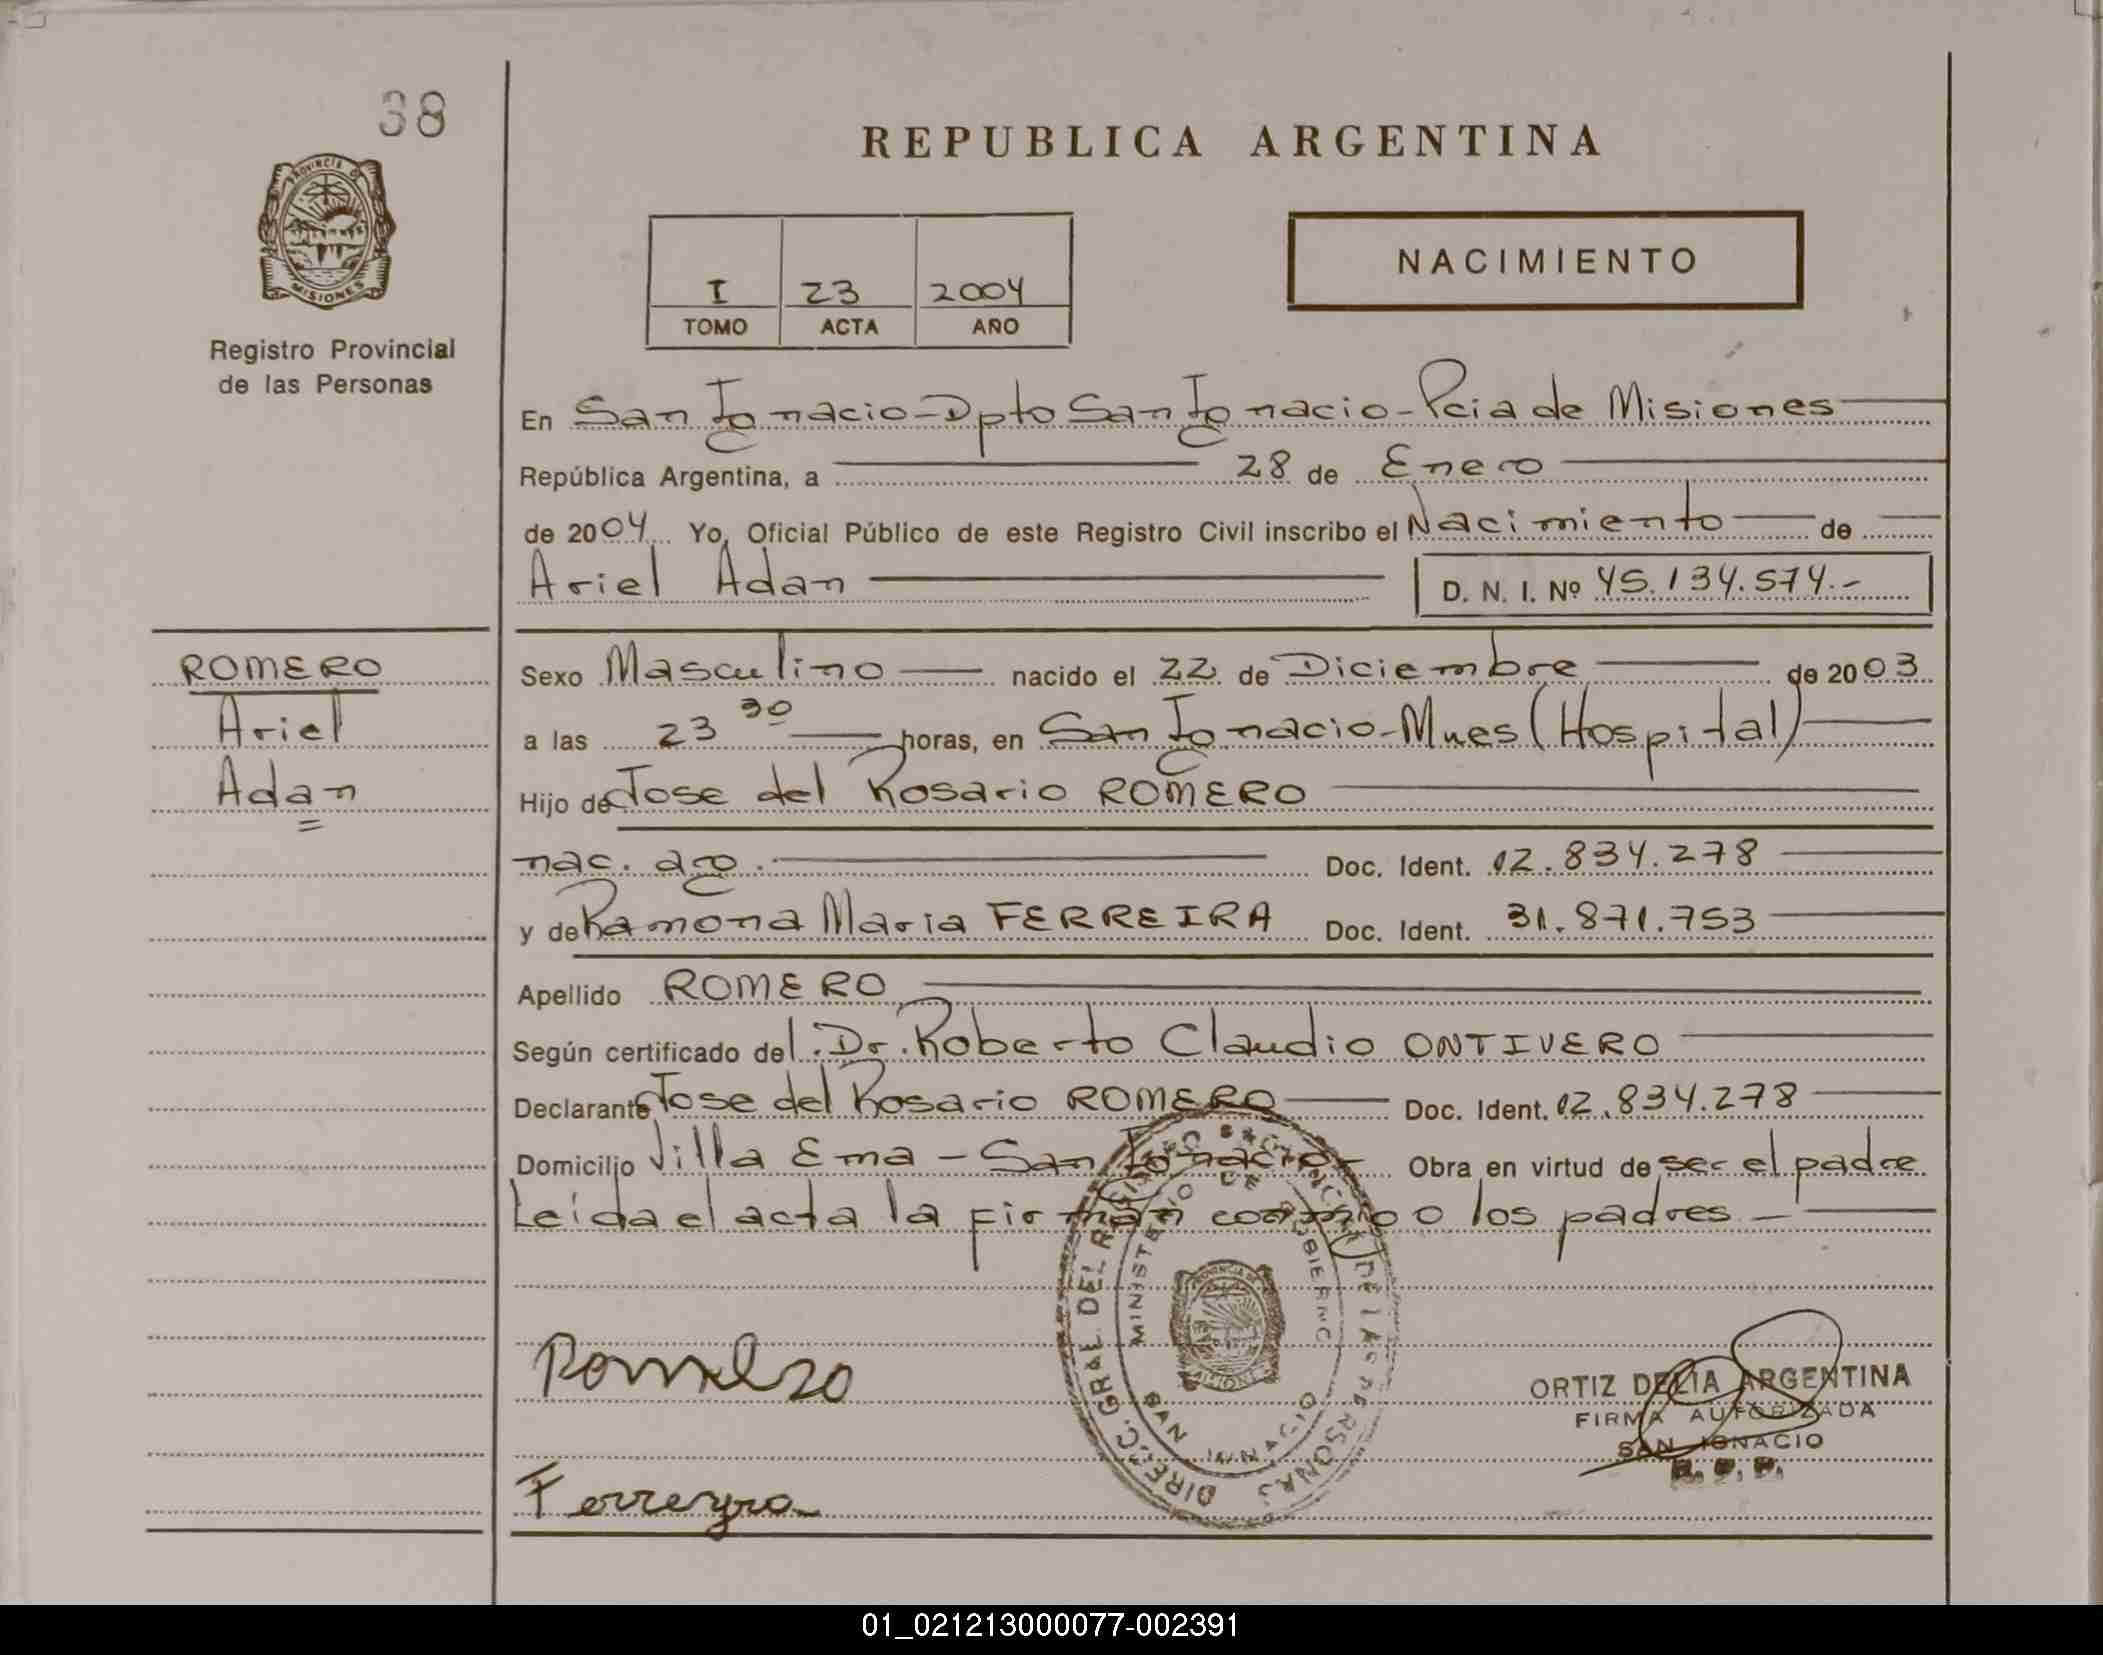 38
PROVINCIA DE
MISIONES
Registro Provincial
de las Personas
REPUBLICA ARGENTINA
I 23 2004
TOMO ACTA AÑO
NACIMIENTO
En San Ignacio - Dpto San Ignacio - Pcia de Misiones
República Argentina, a 28 de Enero
de 2004 Yo, Oficial Público de este Registro Civil inscribo el Nacimiento de
Ariel Adan D. N. I. Nº 45.134.574.-
ROMERO
Ariel
Adan
Sexo Masculino nacido el 22 de Diciembre de 2003
a las 23 30 horas, en San Ignacio - Mnes (Hospital)
Hijo de Jose del Rosario ROMERO
nac. arg. Doc. Ident. 12.834.278
y de Ramona Maria FERREIRA Doc. Ident. 31.871.753
Apellido ROMERO
Según certificado del. Dr. Roberto Claudio ONTIVERO
Declarante Jose del Rosario ROMERO Doc. Ident. 12.834.278
Domicilio Villa Ema - San Ignacio - Obra en virtud de ser el padre
Leída el acta la firman conmigo los padres -
DIRECC. GRAL. DEL REGISTRO PROVINCIAL DE LAS PERSONAS
MINISTERIO DE GOBIERNO
SAN IGNACIO
Romero
Ferreyra
ORTIZ DELIA ARGENTINA
FIRMA AUTORIZADA
SAN IGNACIO
R. P. P.
01_021213000077-002391